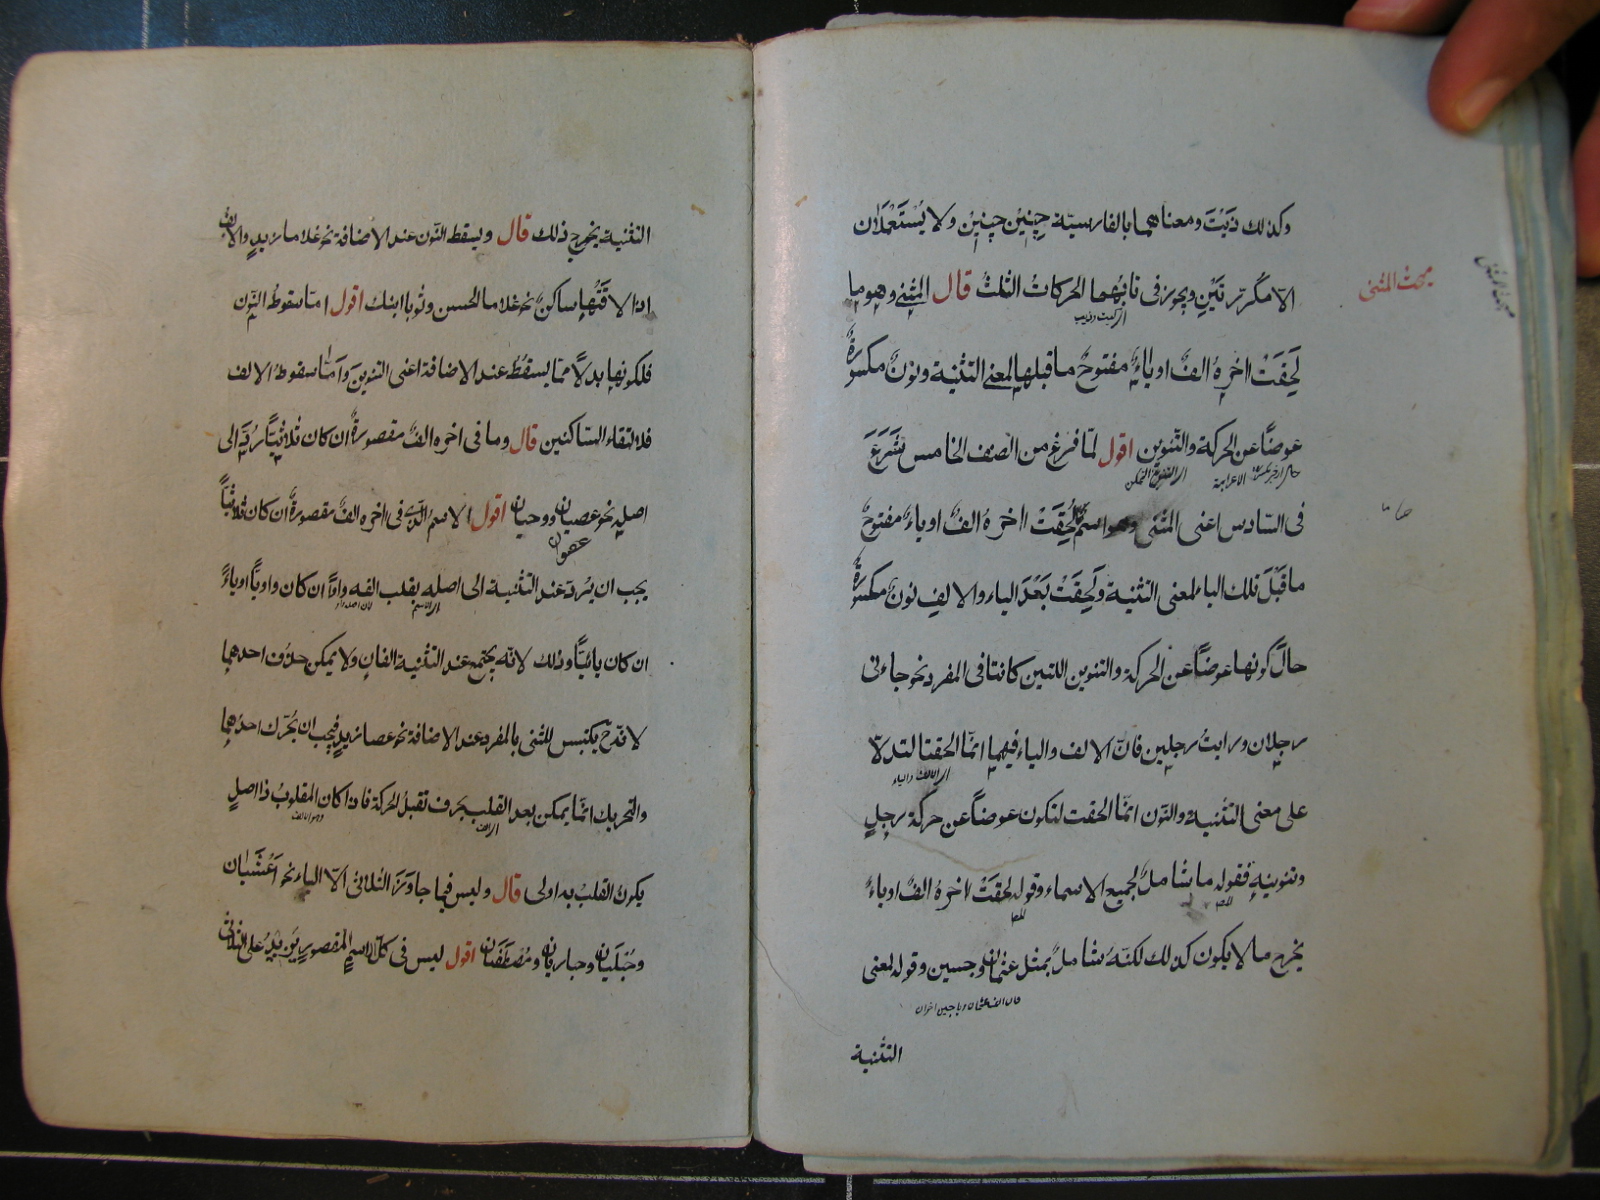 وكذلك ذَيْتَ ومعناهما بالفارسيّة چنين چنين ولا يُسْتَعْمَلان
الا مكرّرتَيْنِ ويجوز فى تائهما الحركات الثلث قال المثنى وهو ما
مبحث المثنى
لَحِقَتْ اخره الفٌ او ياءٌ مفتوحٌ ما قبلها لمعنى التثنية ونونٌ مكسورةٌ
عوضًا عن الحركة والتنوين اقول لمّا فرغ من الصنف الخامس شَرَعَ
فى السّادس اعنى المثنى وهو اسمٌ لَحِقَتْ اخره الفٌ او ياءٌ مفتوحٌ
ما قَبْلَ تلك الياء لمعنى التثنية ولَحِقَتْ بَعْدَ الياء والالفِ نونٌ مكسورةٌ
حالَ كونها عوضًا عن الحركة والتنوين اللتين كانتا فى المفرد نحو جاءنى
رجلان ورايتُ رجلين فانّ الالف والياء فيهما انّما الحقتا لتدلّا
على معنى التثنية والنّون انّما الحقت لتكون عوضًا عن حركة رجلٍ
وتنوينه فقوله ما شاملٌ لجميع الاسماء وقوله لحقَتْ اخرهُ الفٌ او ياءٌ
يخرج ما لا يكون كذلك لكنّه شاملٌ بمثل عثمان وحسين وقوله لمعنى
التثنية
التثنية يخرج ذلك قال ويسقط النّون عند الاضافة نحو غلاما زيدٍ والالفُ
اذا لاقَتْها ساكنٌ نحو غلاما الحسن وثوبا ابنك اقول امّا سقوطُ النّون
فلكونها بدلًا ممّا يسقُطُ عند الاضافة اعنى التنوينَ وامّا سقوطُ الالف
فلالتقاء الساكنين قال وما فى اخره الفٌ مقصورةٌ ان كان ثلاثيًّا رُدّ الى
اصله نحو عصوان ورحيان اقول الاسمُ الّذى فى اخره الفٌ مقصورةٌ ان كان ثلاثيًّا
عصوان
يجب ان يُردّ عند التثنية الى اصله بقلب الفه واوًا ان كان واويًّا او ياءً
ان كان يائيًّا وذلك لانّه يجتمع عند التثنية الفان ولا يمكن حذف احدهما
لانّه ح يلتبس المثنى بالمفرد عند الاضافة نحو عصا زيدٍ فيجب ان يُحرّك احدهما
والتحريك انّما يمكن بعد القلب بحرف تقبلُ الحركة فاذا كان المقلوبُ ذا اصلٍ
يكون القلب به اولى قال وليس فيما جاوزَ الثلاثى الّا الياء نحو اَعْشَيان
وحُبْلَيان وحباريان ومُصْطَفَيان اقول ليس فى كلّ الاسمِ المقصور يزيدُ على الثلاثى